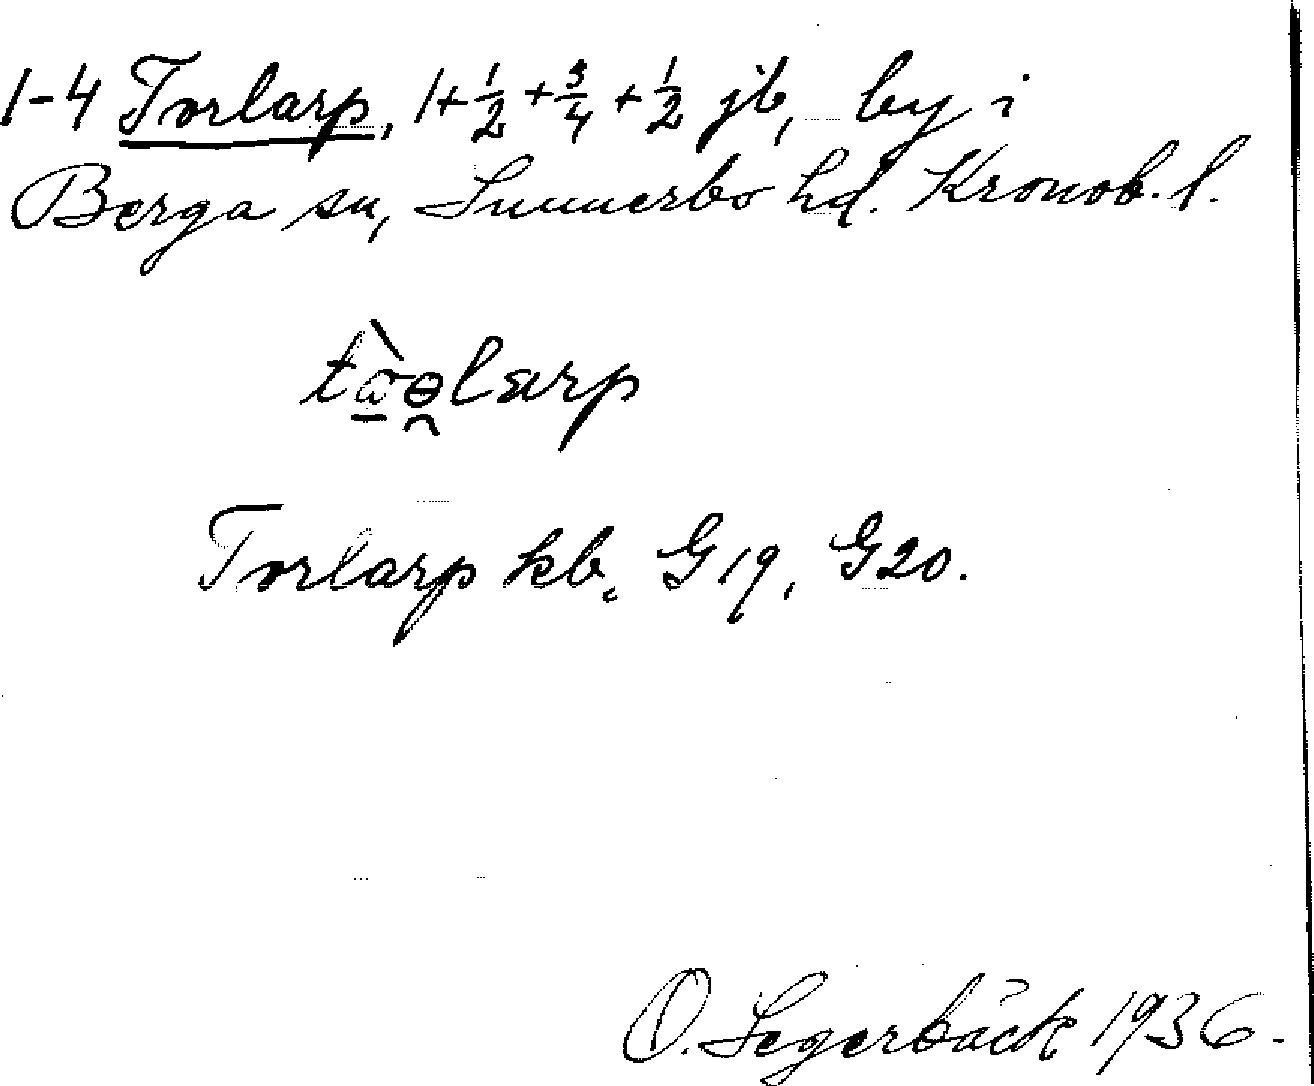 1-4 Torlarp, 1+½+¾+½ jb, by i
Berga sn, Sunnerbo hd. Kronob. l.
Torlarp kb, G19, G20.
O. Segerbäck 1936.